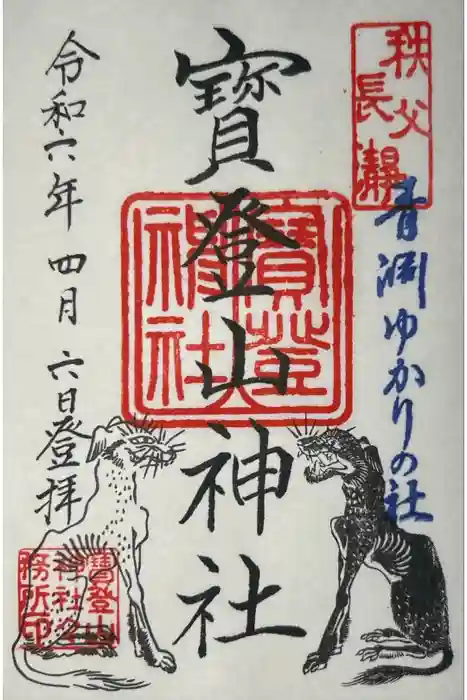 秩父
長瀞
青淵ゆかりの社
寶登山神社
寶登山
神社
令和六年四月六日登拝
寶登山
神社之
務所印